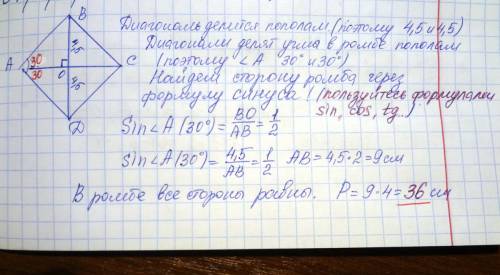 B
A 30 30 O C
4,5
4,5
D
Диагональ делится пополам (поэтому 4,5 и 4,5)
Диагонали делят углы в ромбе пополам
(поэтому ∠A 30° и 30°)
Найдем сторону ромба через
формулу синуса! (пользуйтесь формулами
sin, cos, tg..)
Sin∠A (30°) = BO/AB = 1/2
Sin∠A (30°) = 4,5/AB = 1/2 AB = 4,5·2 = 9 см
В ромбе все стороны равны. P = 9·4 = 36 см